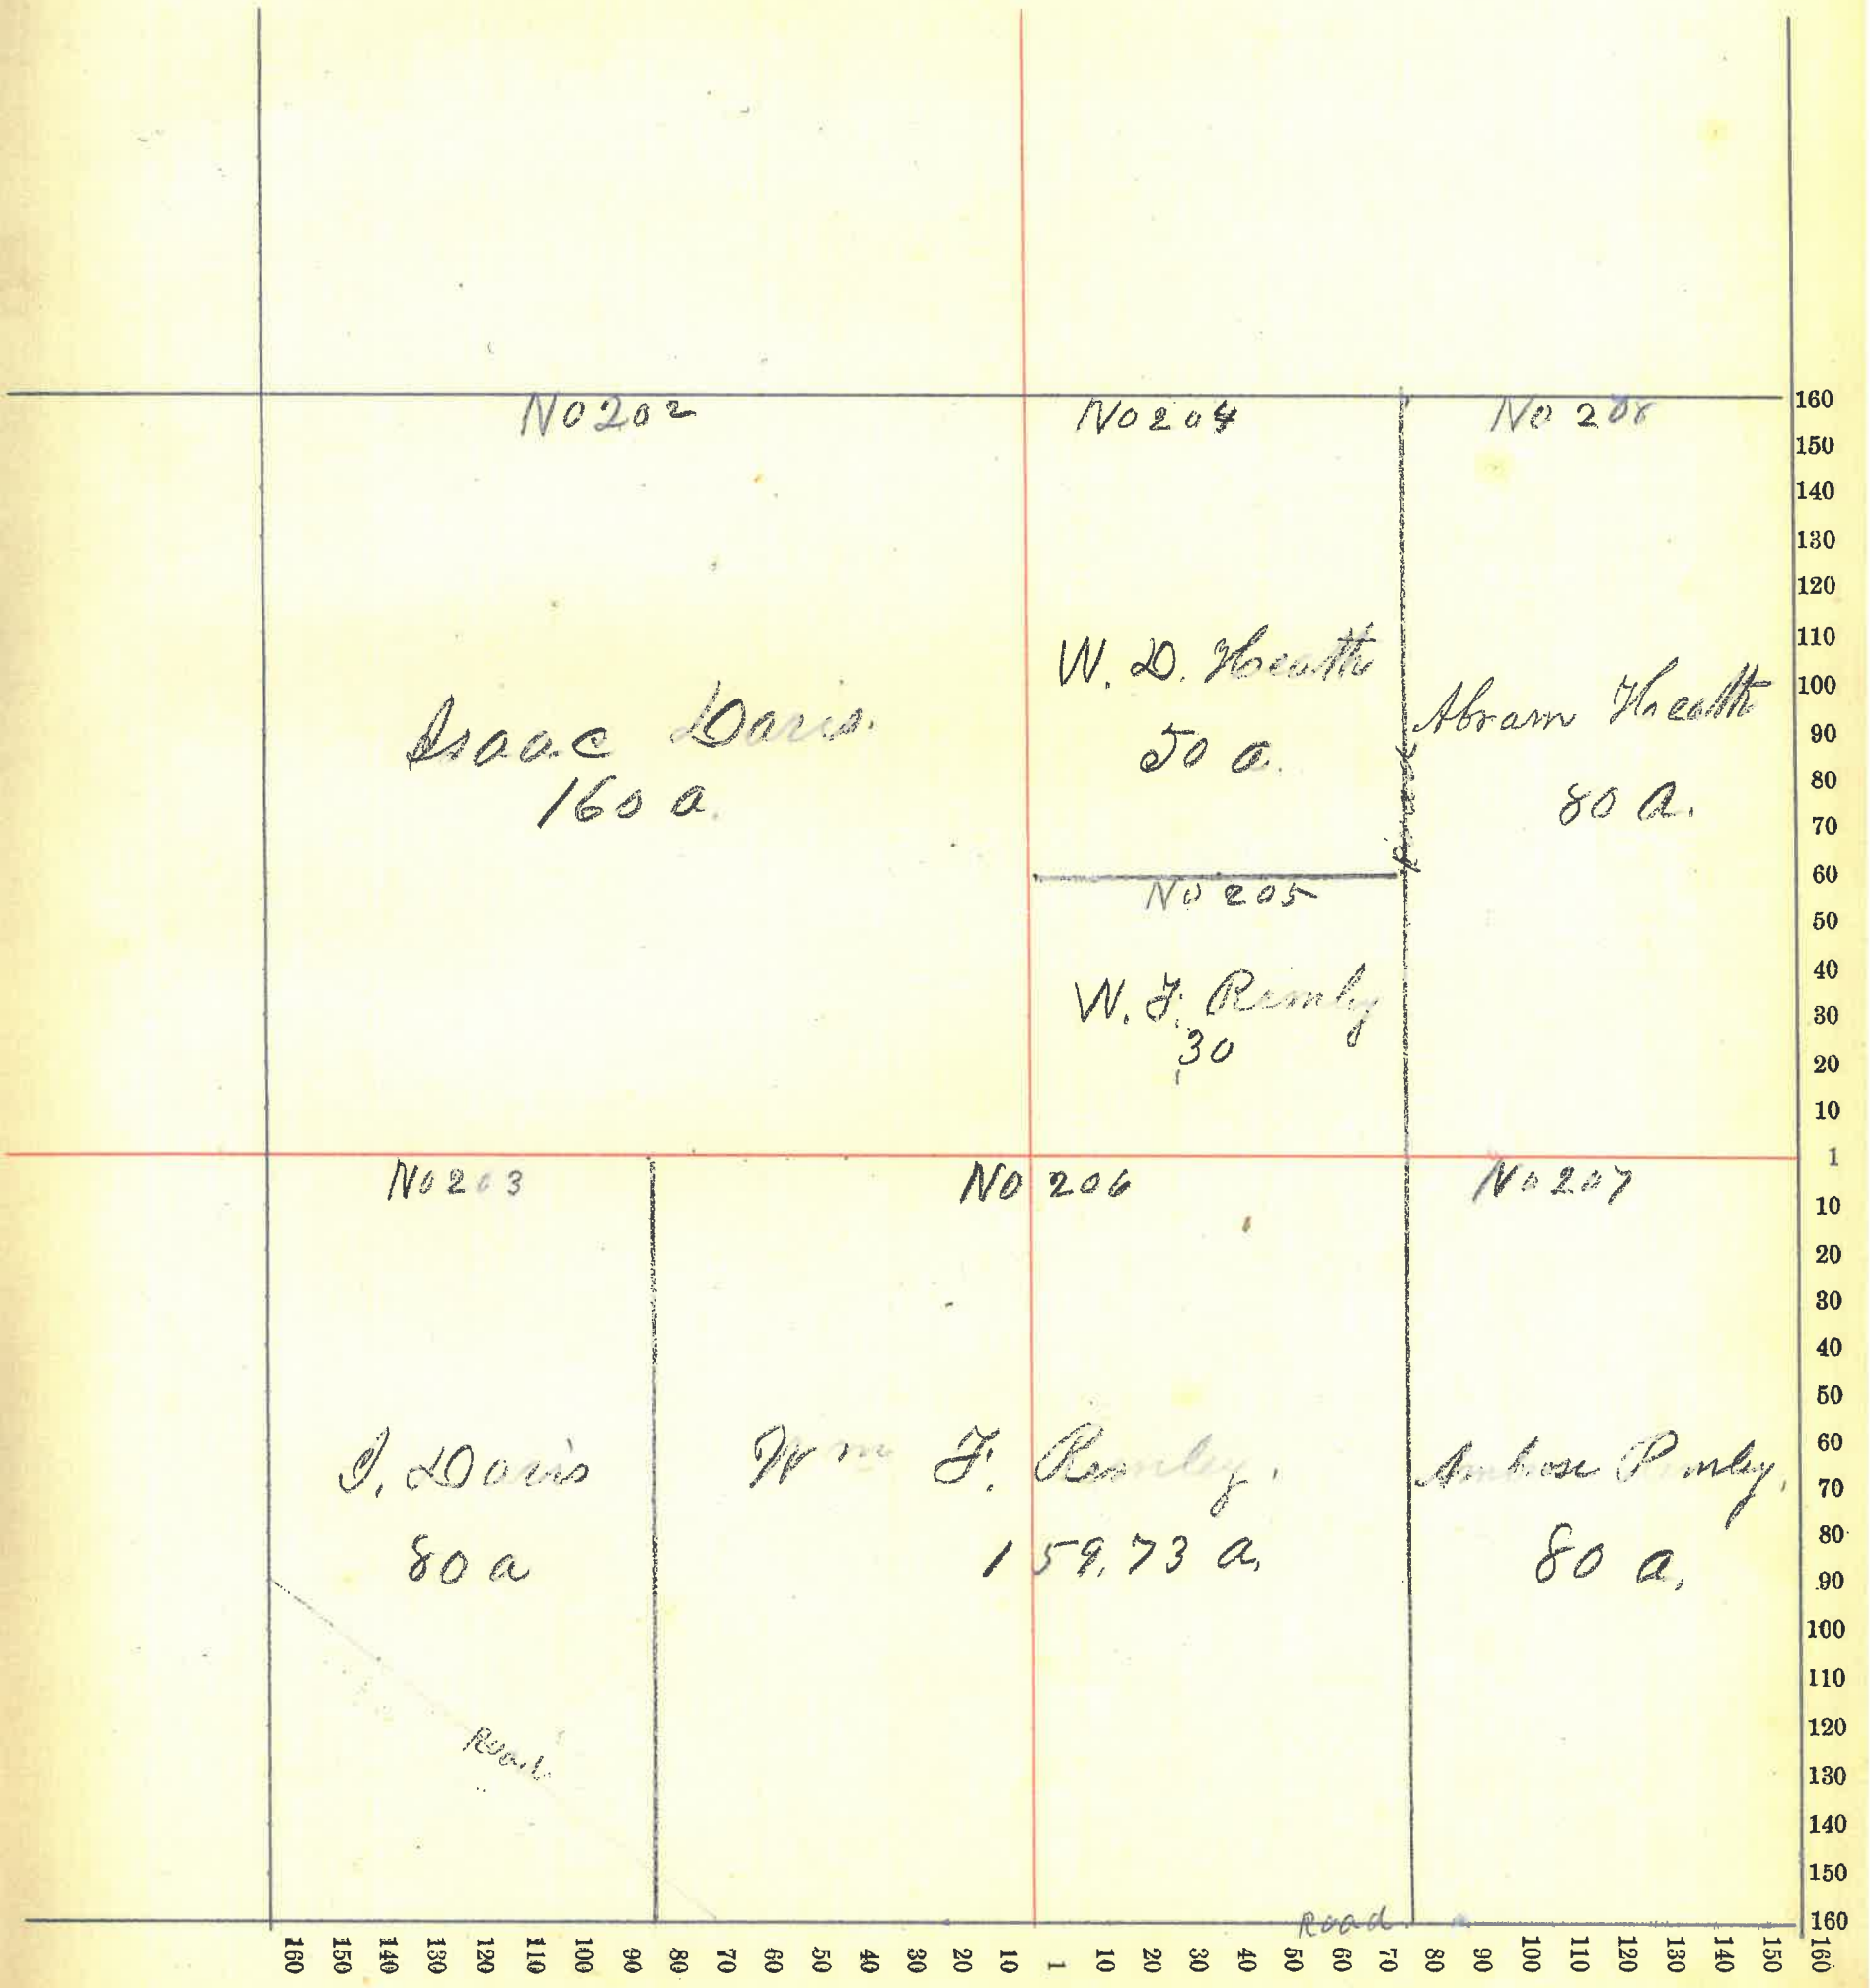 No 202
No 204
No 208
Isaac Davis.
160 a.
W. D. Heath
50 a.
Abram Heath
80 a.
No 205
W. F. Remley
30
No 203
No 206
No 207
I. Davis
80 a
Wm F. Remley.
159.73 a.
Ambrose Remley.
80 a.
Road
Road
160
150
140
130
120
110
100
90
80
70
60
50
40
30
20
10
1
10
20
30
40
50
60
70
80
90
100
110
120
130
140
150
160
160 150 140 130 120 110 100 90 80 70 60 50 40 30 20 10 1 10 20 30 40 50 60 70 80 90 100 110 120 130 140 150 160